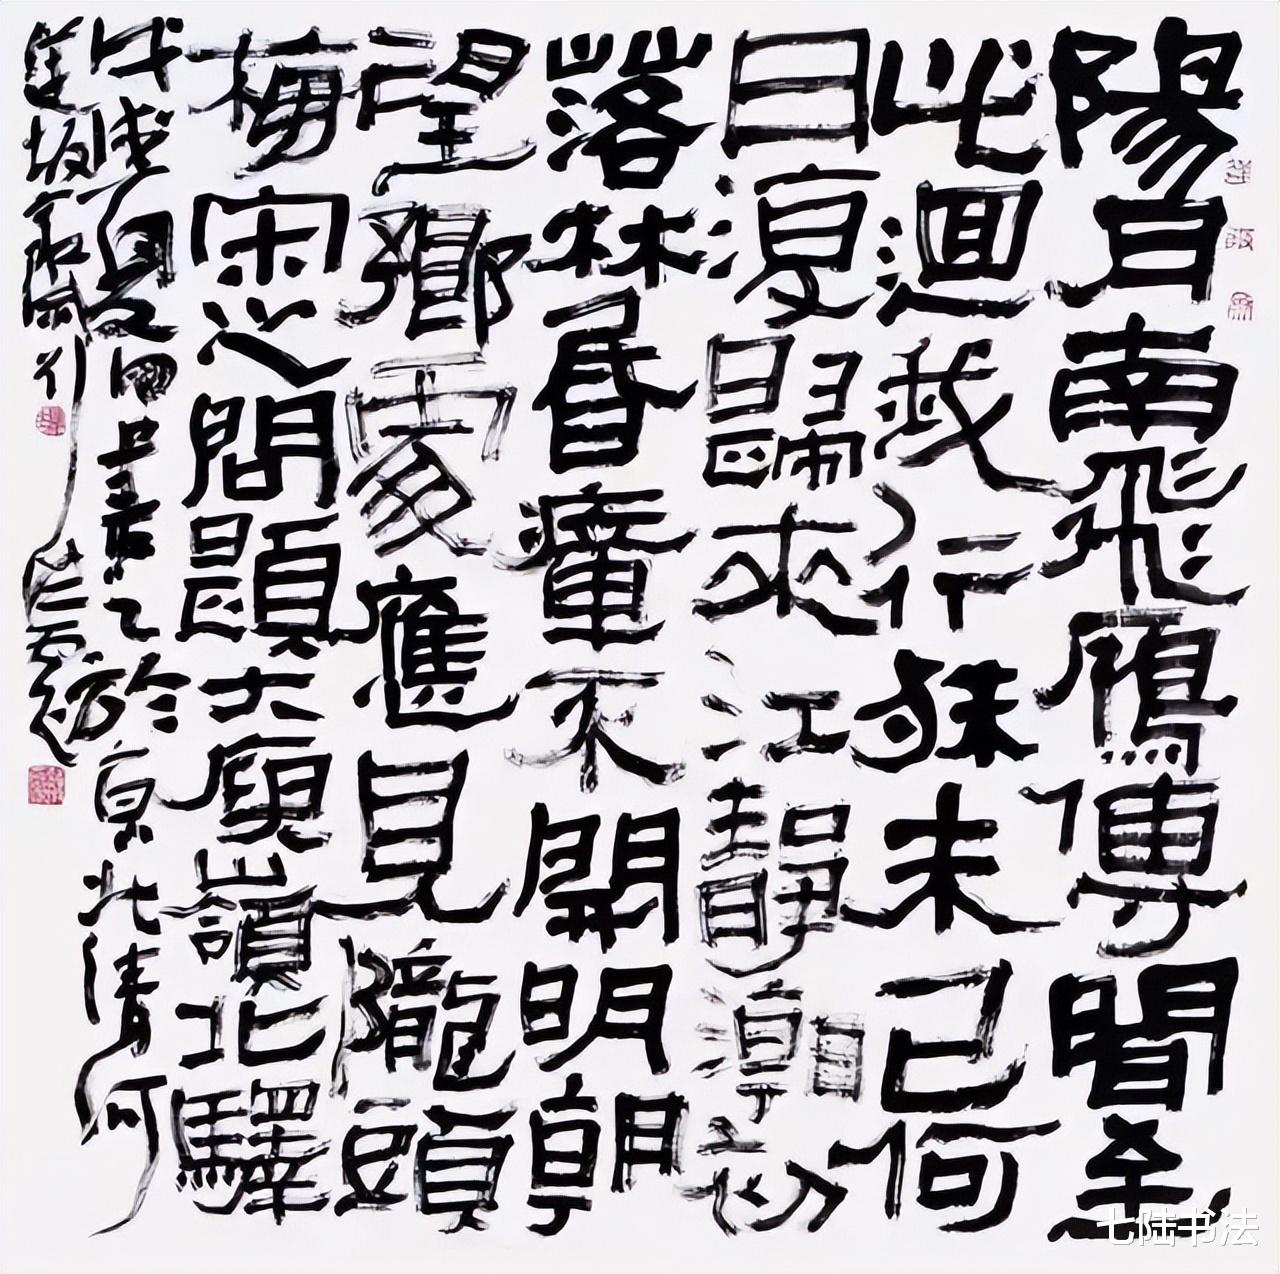 陽月南飛雁傳聞至
此迴我行殊未已何
日復歸來江靜潮初
落林昏瘴不開明朝
望鄉處應見隴頭
梅宋之問題大庾嶺北驛
戊戌夏於京北清河
七陆书法